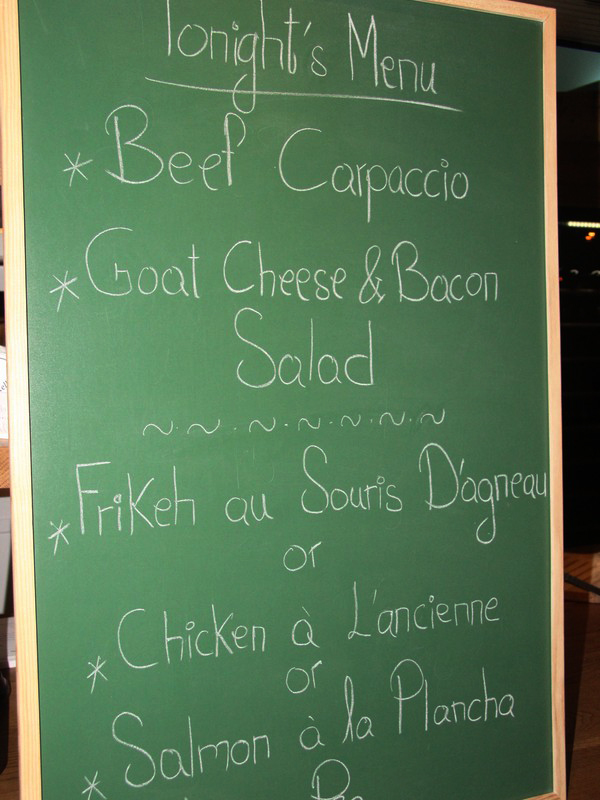 Tonight's Menu
* Beef Carpaccio
* Goat Cheese & Bacon
Salad
~ ~ . ~ . ~ . ~ . ~ . ~
* Frikeh au Souris D'agneau
or
* Chicken à L'ancienne
or
* Salmon à la Plancha